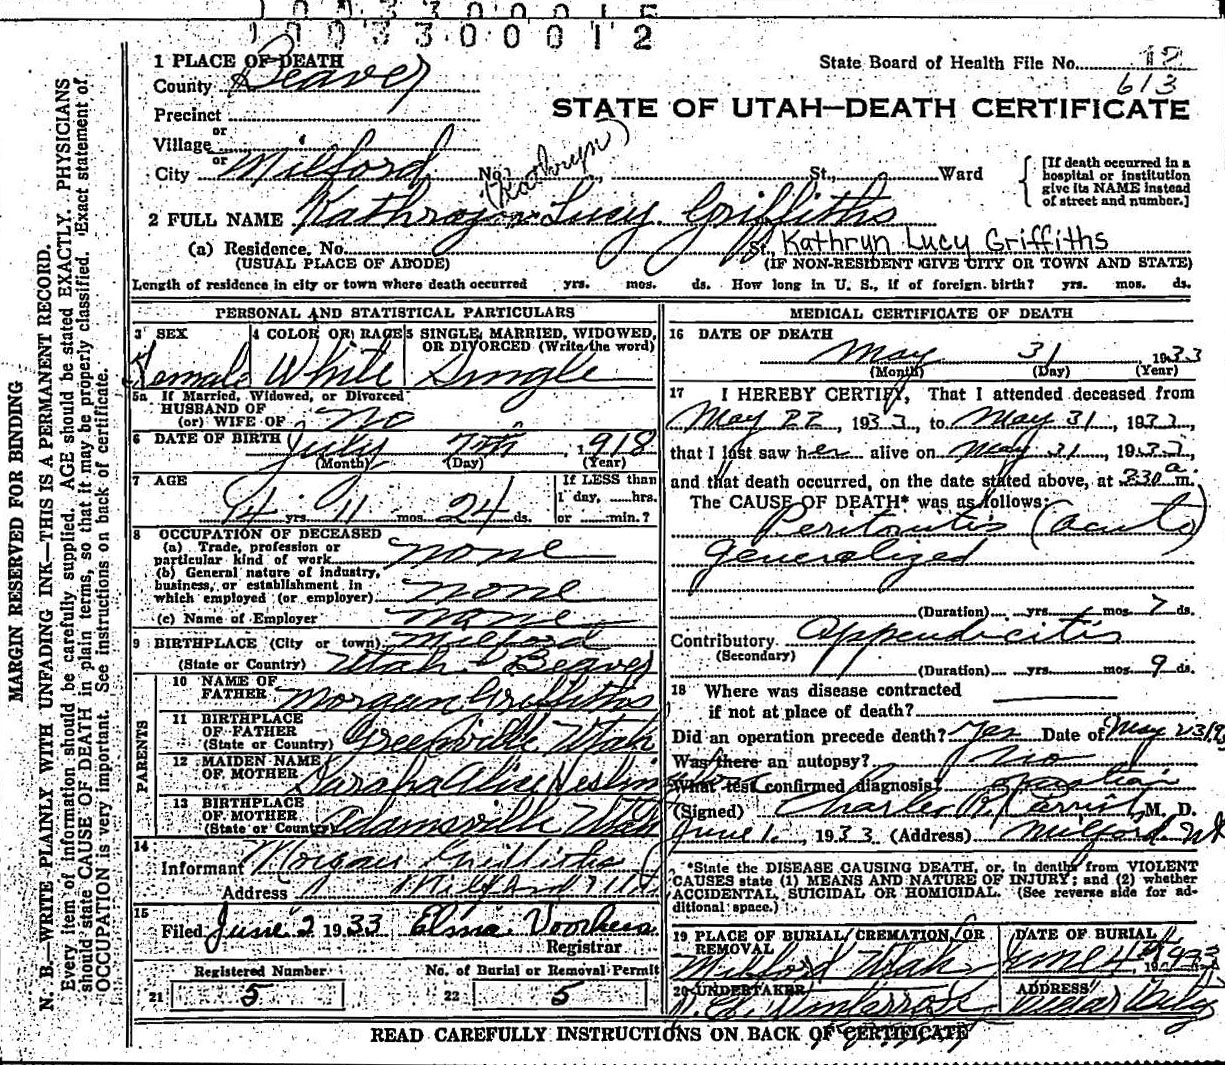 1003300012
1 PLACE OF DEATH
County Beaver
State Board of Health File No. 12
613
Precinct
or
Village
or
City Milford No. St., Ward
STATE OF UTAH—DEATH CERTIFICATE
[If death occurred in a
hospital or institution
give its NAME instead
of street and number.]
(Kathryn)
2 FULL NAME Lucy Griffiths
(a) Residence, No. St. Kathryn Lucy Griffiths
(USUAL PLACE OF ABODE) (IF NON-RESIDENT GIVE CITY OR TOWN AND STATE)
Length of residence in city or town where death occurred yrs. mos. ds. How long in U. S., if of foreign birth? yrs. mos. ds.
PERSONAL AND STATISTICAL PARTICULARS
3 SEX
Female
4 COLOR OR RACE
White
5 SINGLE, MARRIED, WIDOWED,
OR DIVORCED (Write the word)
Single
5a If Married, Widowed, or Divorced
HUSBAND OF
(or) WIFE OF no
6 DATE OF BIRTH July 7th, 1918
(Month) (Day) (Year)
7 AGE
14 yrs. 11 mos. 24 ds.
If LESS than
1 day, hrs.
or min.?
8 OCCUPATION OF DECEASED
(a) Trade, profession or
particular kind of work none
(b) General nature of industry,
business, or establishment in
which employed (or employer) none
(c) Name of Employer none
9 BIRTHPLACE (City or town) Milford
(State or Country) Utah Beaver
PARENTS
10 NAME OF
FATHER Morgan Griffiths
11 BIRTHPLACE
OF FATHER
(State or Country) Greenville Utah
12 MAIDEN NAME
OF MOTHER Sarah Alice
13 BIRTHPLACE
OF MOTHER
(State or Country) Adamsville Utah
14
Informant Morgan Griffiths
Address Milford Utah
15
Filed June 2 1933 Elma Voorhees
Registrar
Registered Number
21 5
No. of Burial or Removal Permit
22 5
MEDICAL CERTIFICATE OF DEATH
16 DATE OF DEATH
May 31, 1933
(Month) (Day) (Year)
17 I HEREBY CERTIFY, That I attended deceased from
May 22, 1933, to May 31, 1933,
that I last saw her alive on May 31, 1933,
and that death occurred, on the date stated above, at 330 a m.
The CAUSE OF DEATH* was as follows:
Peritonitis (acute)
generalized
(Duration) yrs. mos. 7 ds.
Contributory Appendicitis
(Secondary)
(Duration) yrs. mos. 9 ds.
18 Where was disease contracted
if not at place of death?
Did an operation precede death? Yes Date of May 23
Was there an autopsy? No
What test confirmed diagnosis? operation
(Signed) Charles M. D.
June 1, 1933 (Address) Milford Ut
*State the DISEASE CAUSING DEATH, or, in deaths from VIOLENT
CAUSES state (1) MEANS AND NATURE OF INJURY; and (2) whether
ACCIDENTAL, SUICIDAL OR HOMICIDAL. (See reverse side for ad-
ditional space.)
19 PLACE OF BURIAL, CREMATION, OR
REMOVAL
Milford Utah
DATE OF BURIAL
June 4th, 1933
20 UNDERTAKER
ADDRESS
READ CAREFULLY INSTRUCTIONS ON BACK OF CERTIFICATE
MARGIN RESERVED FOR BINDING
N. B.—WRITE PLAINLY WITH UNFADING INK—THIS IS A PERMANENT RECORD.
Every item of information should be carefully supplied. AGE should be stated EXACTLY. PHYSICIANS
should state CAUSE OF DEATH in plain terms, so that it may be properly classified. Exact statement of
OCCUPATION is very important. See instructions on back of certificate.